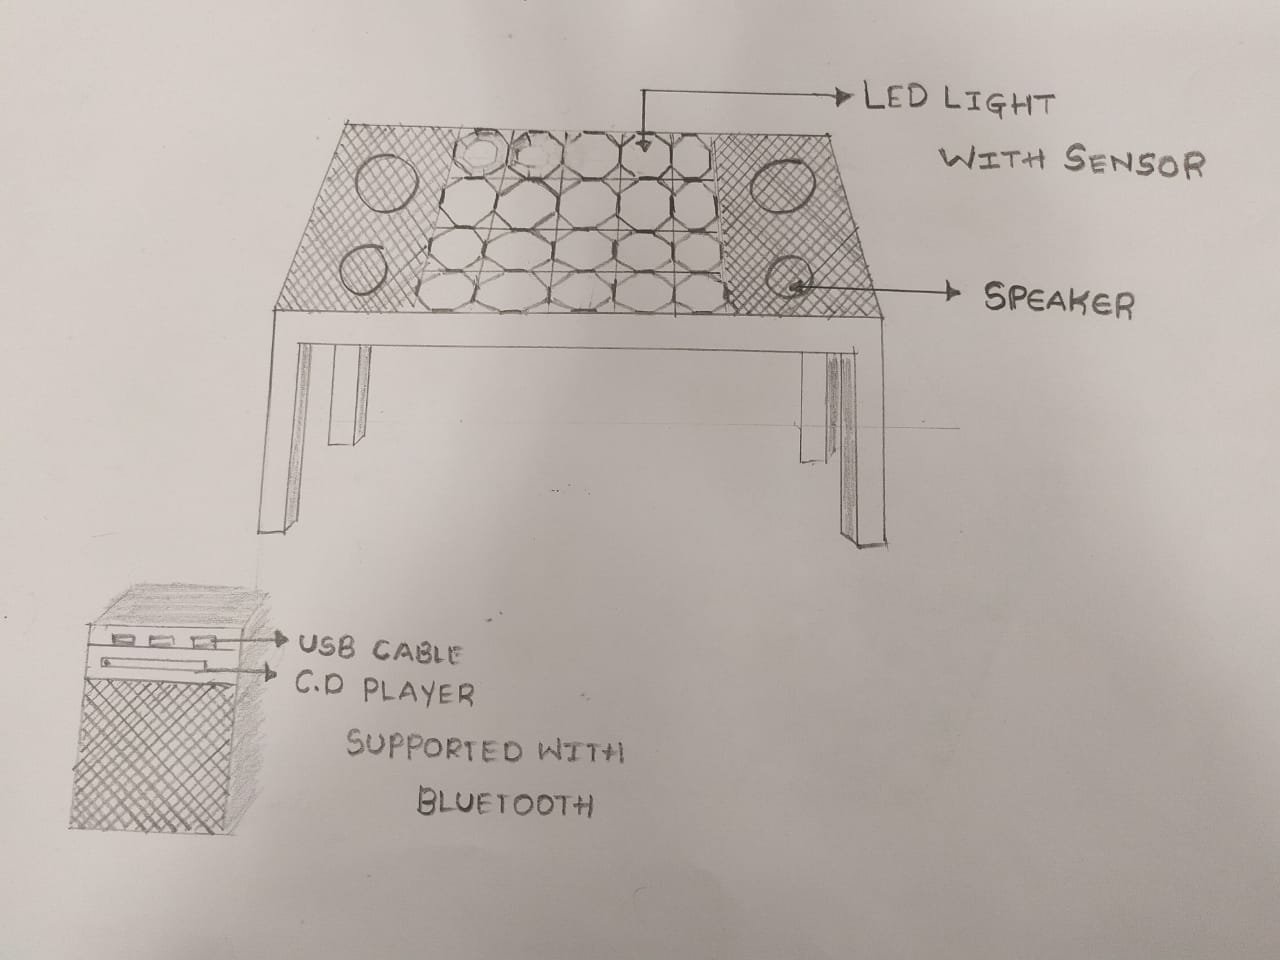 LED LIGHT
WITH SENSOR
SPEAKER
USB CABLE
C.D PLAYER
SUPPORTED WITH
BLUETOOTH